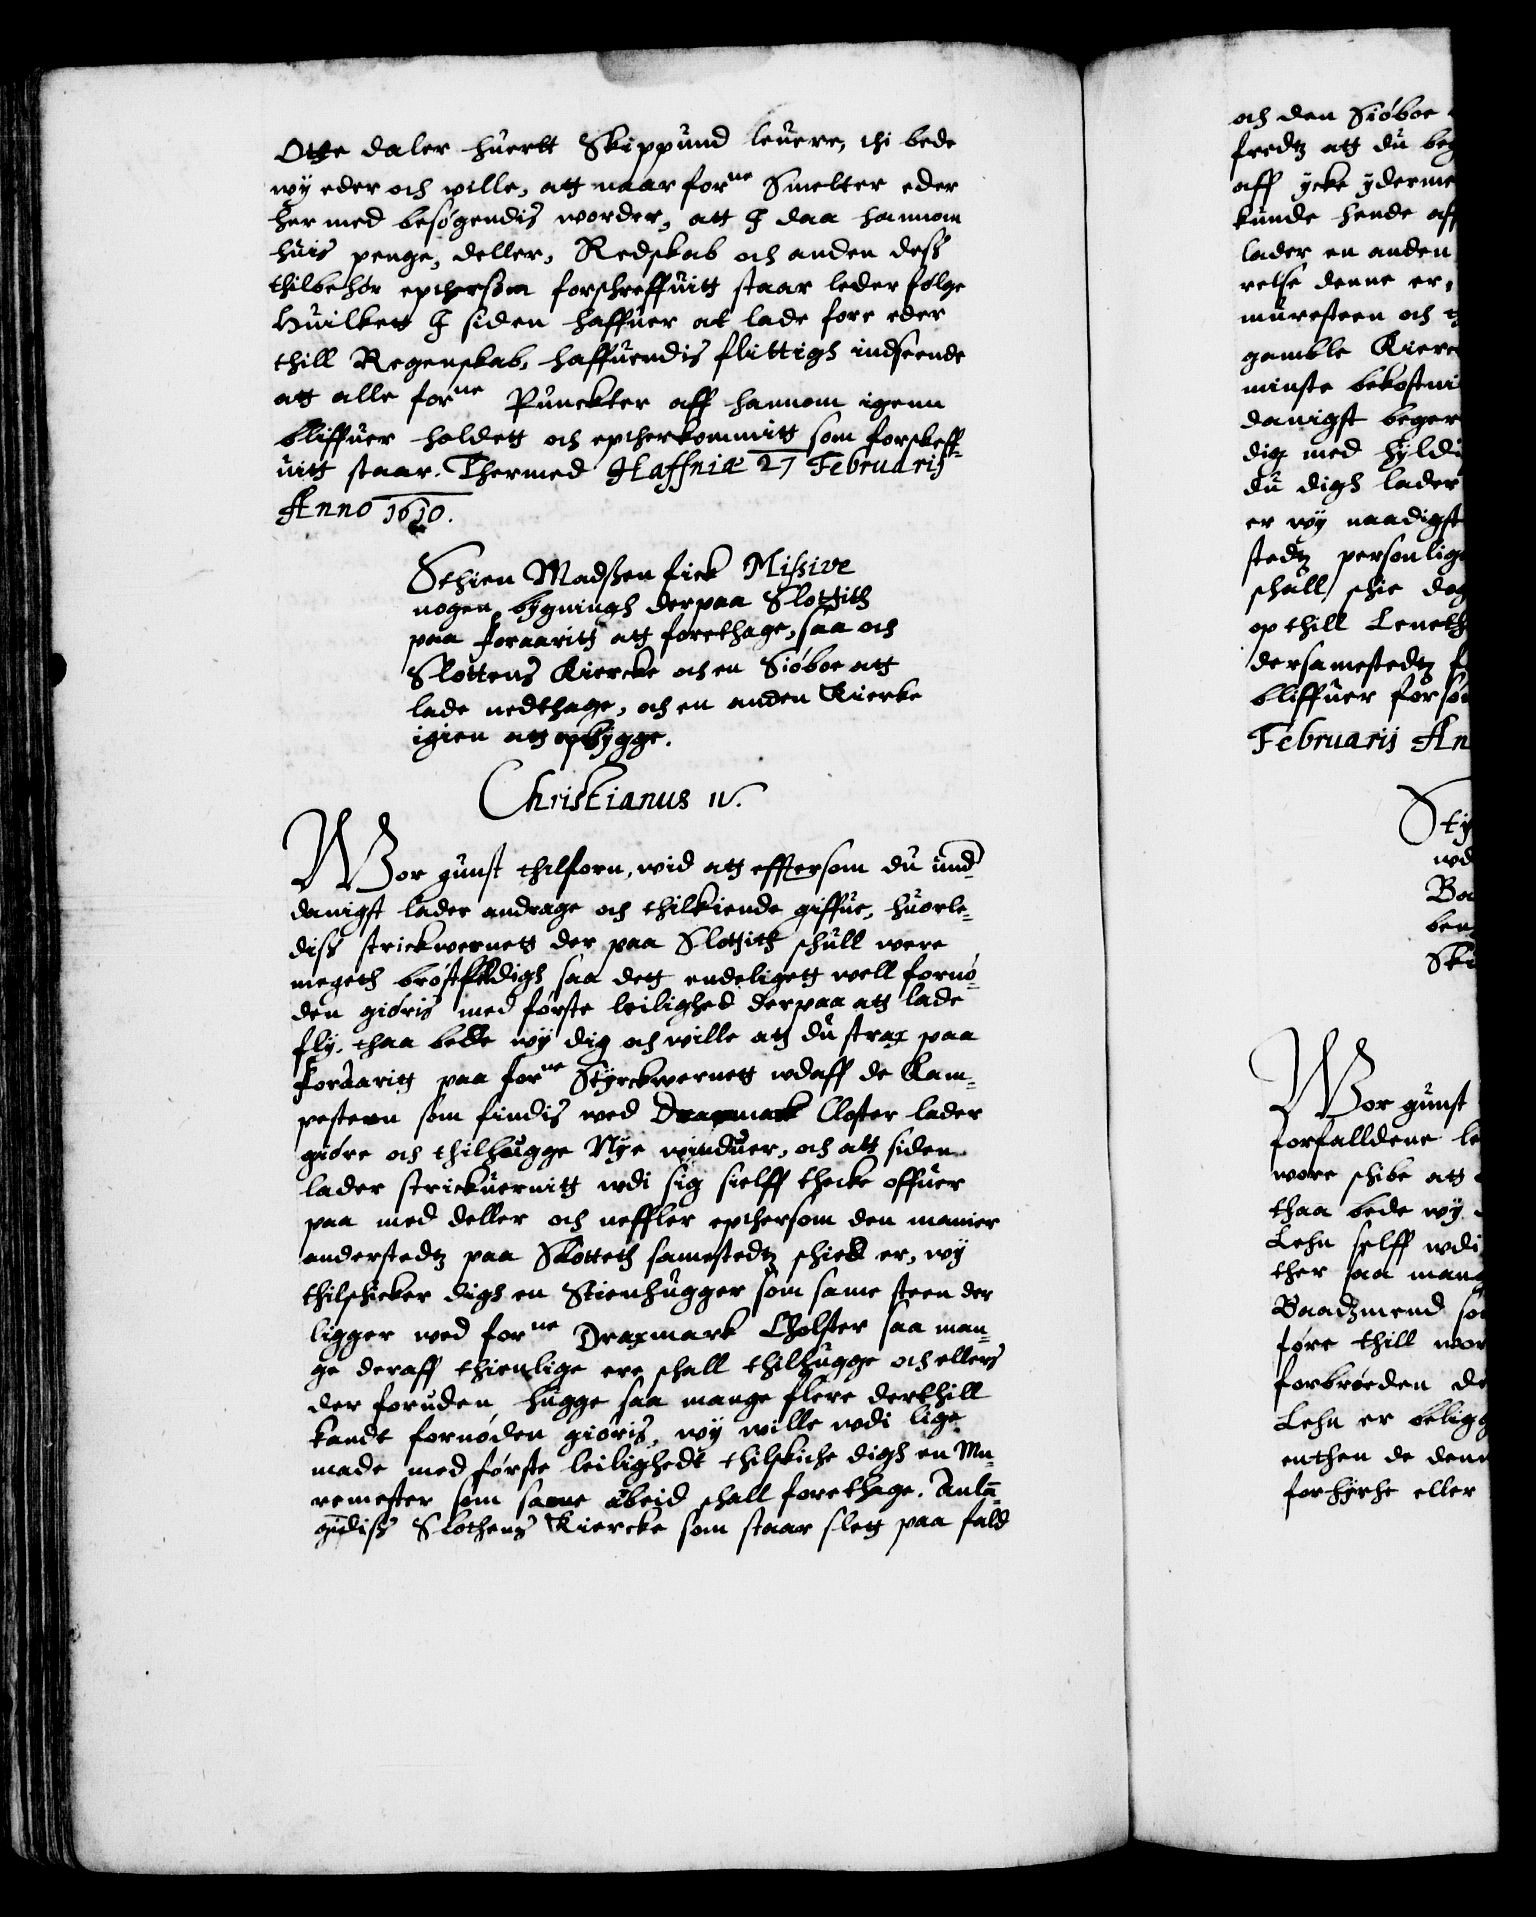 Otte daler huertt Skippund leuere, thi bede
wÿ eder och wille, att naar forne Smelter eder
her med besøgendis worder, att I daa hannom
huis penge, deller, Redskab och anden dess
thilbehør epthersom forschreffuitt staar leder følge
Huilkett I siden haffuer at lade føre eder
thill Regenskab, haffuendis flittigh indseende
att alle forne Punckter aff hannom igenn
bliffuer holdett och eptherkommitt som forskeff-
uitt staar. Thermed Haffniæ 27 Februarij
Anno 1610.
Sthien Madssen fick Missive
nogen bÿgningh derpaa Slottith
paa foraaritt att forethage, saa och
Slottens Kiercke och en Siøboe att
lade nedthage, och en anden Kierke
igien att opbÿgge.
Christianus IV.
Wor gunst thilforn, wid att efftersom du und-
danigst lader andrage och thilkiende giffue, huorle-
diss strickwernett der paa Slottith schull were
megeth brøstfeldigh saa dett endeligett well fornø-
den giøris med første leilighed derpaa att lade
flÿ, thaa bede wÿ dig och wille att du strax paa
foraaritt paa forne Stÿrckwernett wdaff de Kam-
pesteen som findis wed Dragmark Closter lader
giøre och thilhugge Nÿe winduer, och att siden
lader strickuernitt wdi sig sielff thecke offuer
paa med deller och neffler epthersom den manier
anderstedtz paa Slotteth samestedtz schick er, wÿ
thilschicker digh en Stienhugger som same steen der
ligger wed forne Dragmark Cholster saa man-
ge deraff thienlige ere schall thilhugge och ellers
der foruden hugge saa mange flere derthill
kandt fornøden giøris, wÿ wille wdi lige
made med første leilighedt thilskiche digh en Mu-
remester som same abeid schall forethage. Anla-
gendiss Slothens Kiercke som staar slett paa fald
och den Siøboe
fredtz att du beg
aff ÿcke ÿderme
kunde hende aff
lader en anden
relse denne er,
muresteen och
gamble Kierc
minste bekostni
danigst beger
dig med hÿld
du digh lader
er wÿ naadigst
stedtz personlig
schall schie dog
op thill Leneth
dersamestedtz
bliffuer forsø
Februarij An
Stÿ
wd
Bo
ben
Ski
Wor gunst
forfalldene le
wore schibe att
thaa bede wÿ
Lehn selff wdi
ther saa mang
Baadzmend so
føre thill wor
forbrøeden de
Lehn er belig
enthen de denn
forhÿrhe eller